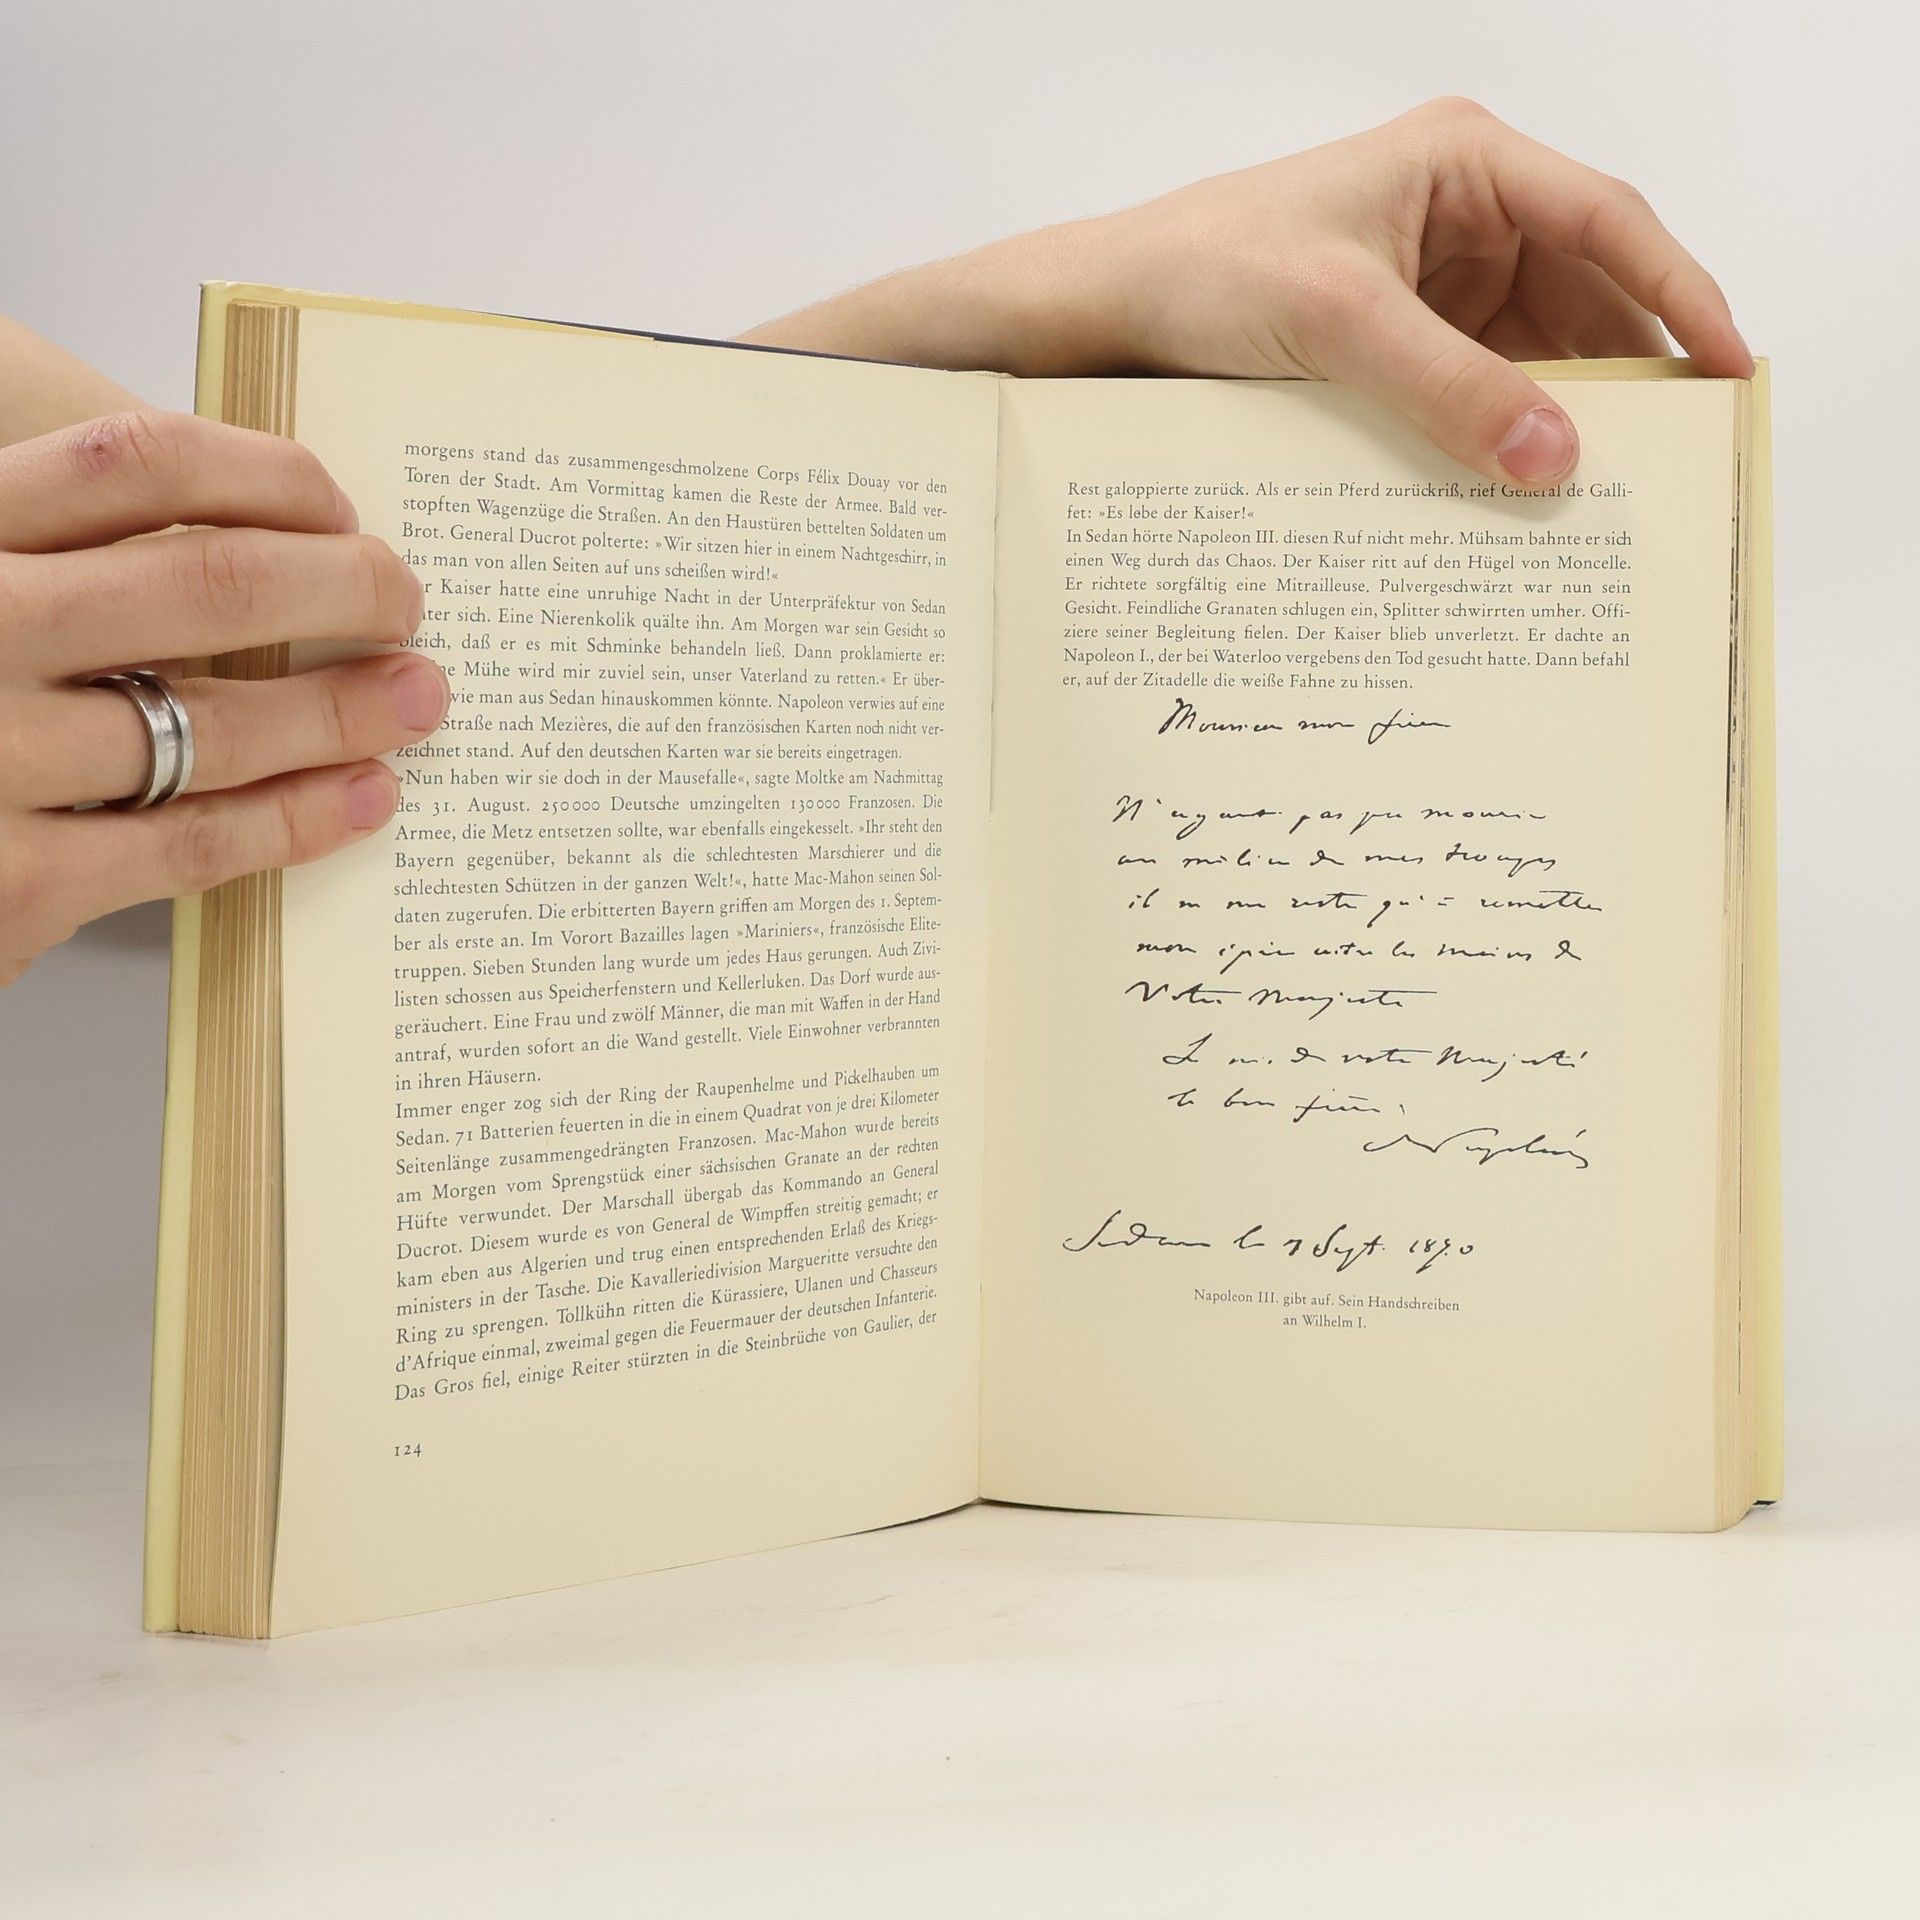 morgens stand das zusammengeschmolzene Corps Félix Douay vor den
Toren der Stadt. Am Vormittag kamen die Reste der Armee. Bald ver-
stopften Wagenzüge die Straßen. An den Haustüren bettelten Soldaten um
Brot. General Ducrot polterte: »Wir sitzen hier in einem Nachtgeschirr, in
das man von allen Seiten auf uns scheißen wird!«
Kaiser hatte eine unruhige Nacht in der Unterpräfektur von Sedan
sich. Eine Nierenkolik quälte ihn. Am Morgen war sein Gesicht so
bleich, daß er es mit Schminke behandeln ließ. Dann proklamierte er:
Mühe wird mir zuviel sein, unser Vaterland zu retten.« Er über-
wie man aus Sedan hinauskommen könnte. Napoleon verwies auf eine
Straße nach Mezières, die auf den französischen Karten noch nicht ver-
zeichnet stand. Auf den deutschen Karten war sie bereits eingetragen.
»Nun haben wir sie doch in der Mausefalle«, sagte Moltke am Nachmittag
des 31. August. 250000 Deutsche umzingelten 130000 Franzosen. Die
Armee, die Metz entsetzen sollte, war ebenfalls eingekesselt. »Ihr steht den
Bayern gegenüber, bekannt als die schlechtesten Marschierer und die
schlechtesten Schützen in der ganzen Welt!«, hatte Mac-Mahon seinen Sol-
daten zugerufen. Die erbitterten Bayern griffen am Morgen des 1. Septem-
ber als erste an. Im Vorort Bazailles lagen »Mariniers«, französische Elite-
truppen. Sieben Stunden lang wurde um jedes Haus gerungen. Auch Zivi-
listen schossen aus Speicherfenstern und Kellerluken. Das Dorf wurde aus-
geräuchert. Eine Frau und zwölf Männer, die man mit Waffen in der Hand
antraf, wurden sofort an die Wand gestellt. Viele Einwohner verbrannten
in ihren Häusern.
Immer enger zog sich der Ring der Raupenhelme und Pickelhauben um
Sedan. 71 Batterien feuerten in die in einem Quadrat von je drei Kilometer
Seitenlänge zusammengedrängten Franzosen. Mac-Mahon wurde bereits
am Morgen vom Sprengstück einer sächsischen Granate an der rechten
Hüfte verwundet. Der Marschall übergab das Kommando an General
Ducrot. Diesem wurde es von General de Wimpffen streitig gemacht; er
kam eben aus Algerien und trug einen entsprechenden Erlaß des Kriegs-
ministers in der Tasche. Die Kavalleriedivision Margueritte versuchte den
Ring zu sprengen. Tollkühn ritten die Kürassiere, Ulanen und Chasseurs
d'Afrique einmal, zweimal gegen die Feuermauer der deutschen Infanterie.
Das Gros fiel, einige Reiter stürzten in die Steinbrüche von Gaulier, der
124
Rest galoppierte zurück. Als er sein Pferd zurückriß, rief General de Galli-
fet: »Es lebe der Kaiser!«
In Sedan hörte Napoleon III. diesen Ruf nicht mehr. Mühsam bahnte er sich
einen Weg durch das Chaos. Der Kaiser ritt auf den Hügel von Moncelle.
Er richtete sorgfältig eine Mitrailleuse. Pulvergeschwärzt war nun sein
Gesicht. Feindliche Granaten schlugen ein, Splitter schwirrten umher. Offi-
ziere seiner Begleitung fielen. Der Kaiser blieb unverletzt. Er dachte an
Napoleon I., der bei Waterloo vergebens den Tod gesucht hatte. Dann befahl
er, auf der Zitadelle die weiße Fahne zu hissen.
Monsieur mon frère
N'ayant pas pu mourir
au milieu de mes troupes
il ne me reste qu'à remettre
mon épée entre les mains de
Votre Majesté
Je suis de votre Majesté
le bon frère
Napoléon
Sedan le 1 Sept. 1870
Napoleon III. gibt auf. Sein Handschreiben
an Wilhelm I.